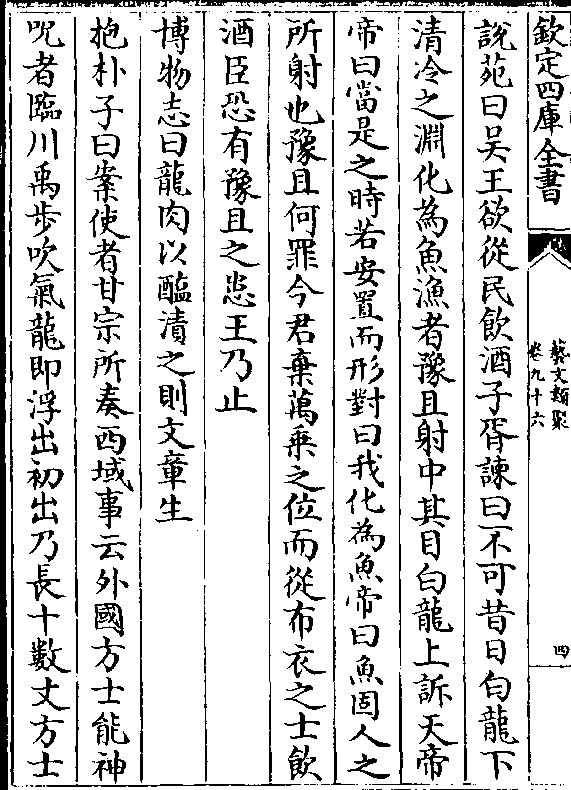 欽定四庫全書
藝文類聚
卷九十六
四
說苑曰吴王欲從民飲酒子胥諫曰不可昔日白龍下
清冷之淵化為魚漁者豫且射中其目白龍上訴天帝
帝曰當是之時若安置而形對曰我化為魚帝曰魚固人之
所射也豫且何罪今君棄萬乘之位而從布衣之士飲
酒臣恐有豫且之患王乃止
博物志曰龍肉以醢漬之則文章生
抱朴子曰案使者甘宗所奏西域事云外國方士能神
呪者臨川禹步吹氣龍即浮出初出乃長十數丈方士